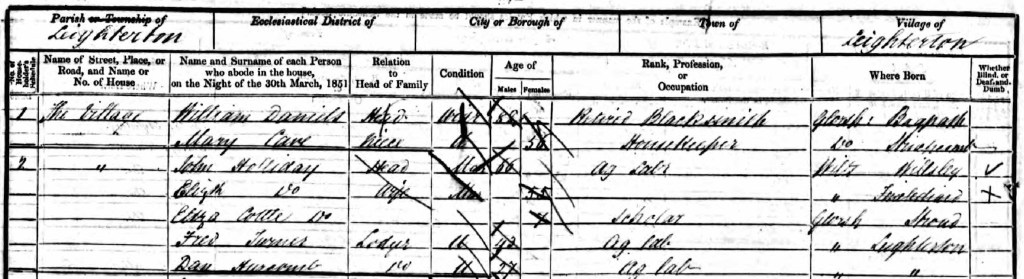 Parish or Township of Ecclesiastical District of City or Borough of Town of Village of
Leighterton Leighterton
No. of House-holder's Schedule Name of Street, Place, or Road, and Name or No. of House Name and Surname of each Person who abode in the house, on the Night of the 30th March, 1851 Relation to Head of Family Condition Age of Males Females Rank, Profession, or Occupation Where Born Whether Blind, or Deaf-and-Dumb
1 The Village William Daniels Head Retired Blacksmith Glosh: Bagpath
Mary U 50 Housekeeper Do
2 " John Holliday Head Mar 66 Ag Lab Wilts
Elizth Do Wife Mar 55 "
Eliza Cottle Do Scholar Glosh Stroud
Fred Turner Lodger U Ag Lab " Leighterton
Dan Do U 27 Ag Lab " "